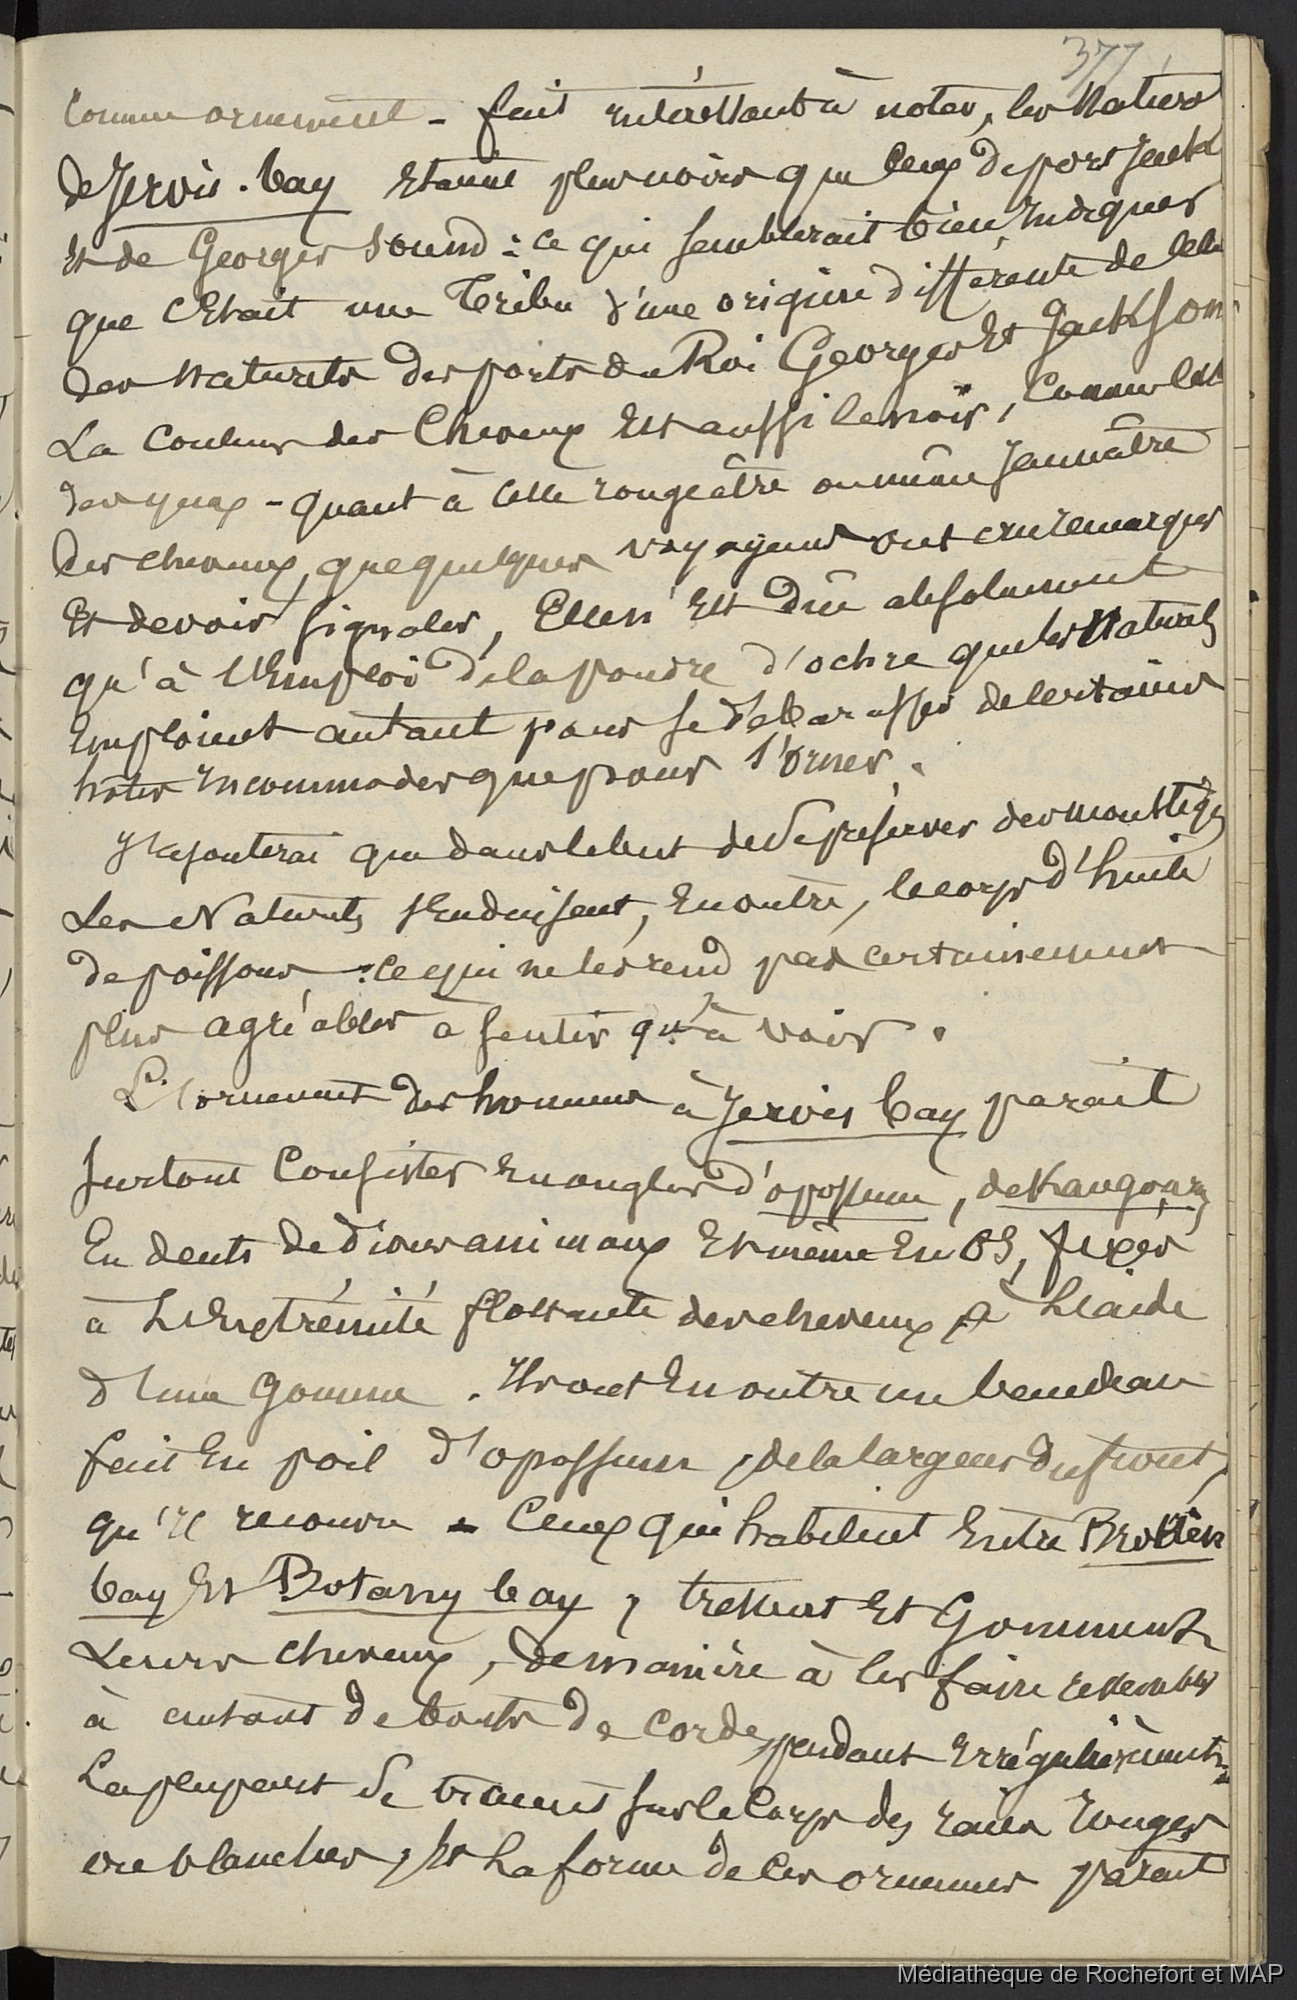 377
Comme ornement - fait intéressant à noter, les naturels
de Jervis-bay étaient plus noirs que ceux de port Jackson
et de Georges Sound : ce qui semblerait bien indiquer
que c'était une Tribu d'une origine différente de celle
des naturels des ports du Roi Georges et Jackson
La couleur des Cheveux est aussi le noir, comme celle
des yeux - quant à celle rougeâtre ou même jaunâtre
des cheveux, que quelques voyageurs ont cru remarquer
et devoir signaler, Elle n'est due absolument
qu'à l'Emploi de la poudre d'ochre que les Naturels
Emploient autant pour se débarasser de certains
hôtes incommodes que pour s'orner.
J'ajouterai que dans le but de se préserver des moustiques
Les Naturels s'enduisent, En outre, le corps d'huile
de poissons : ce qui ne les rend pas certainement
plus agréables à sentir qu'à voir.
L'ornement des hommes à Jervis bay parait
surtout Consister en ongles d'opossum, de Kangourous
En dents de divers animaux Et même En os, fixés
à L'Extrémité flottante des cheveux à L'aide
d'une gomme. Ils ont En outre un bandeau
fait En poil d'opossum, de la largeur du front,
qu'il recouvre - Ceux qui habitent Entre Broken
bay Et Botany bay, tressent Et Gomment
Leurs cheveux, de manière à les faire ressembler
à autant de bouts de corde, pendant irrégulièrement
La plupart se tracent sur le corps des raies rouges
ou blanches, Et La forme de ces ornemens parait
Médiathèque de Rochefort et MAP